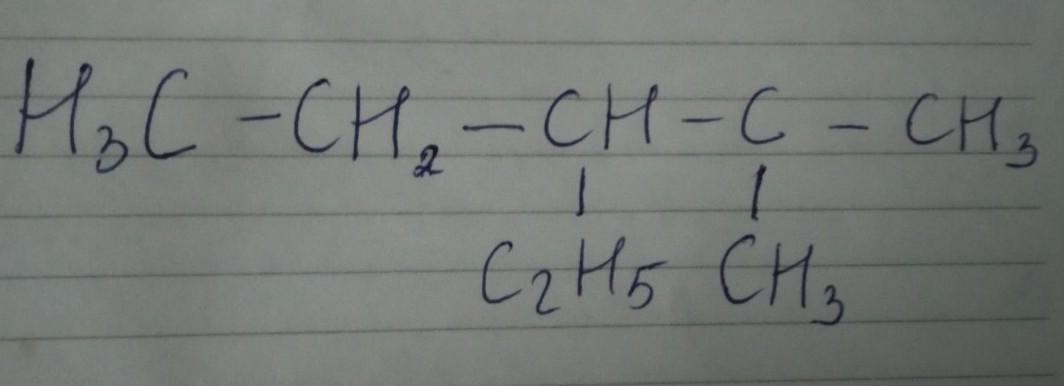 H₃C - CH₂ - CH - C - CH₃
| |
C₂H₅ CH₃